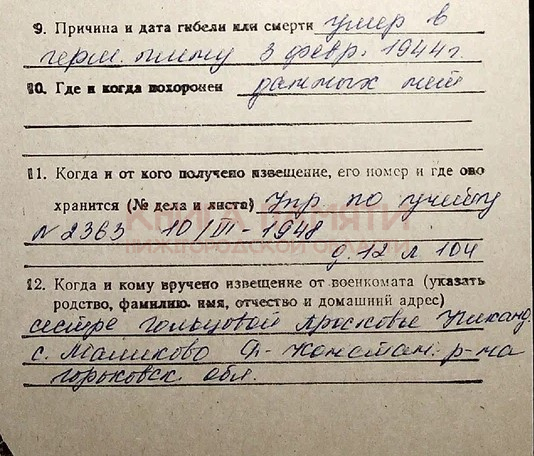 9. Причина и дата гибели или смерти умер в
герм. плену 3 февр. 1944 г.
10. Где и когда похоронен данных нет
11. Когда и от кого получено извещение, его номер и где оно
хранится (№ дела и листа) Упр по учету
КНИГА ПАМЯТИ
N 2363 10/III - 1948
НИЖЕГОРОДСКОЙ ОБЛАСТИ
д. 12 л. 104
12. Когда и кому вручено извещение от военкомата (указать
родство, фамилию, имя, отчество и домашний адрес)
сестре Гольцовой Просковье Никанд.
с. Маликово Д-Констан. р-на
Горьковск. обл.